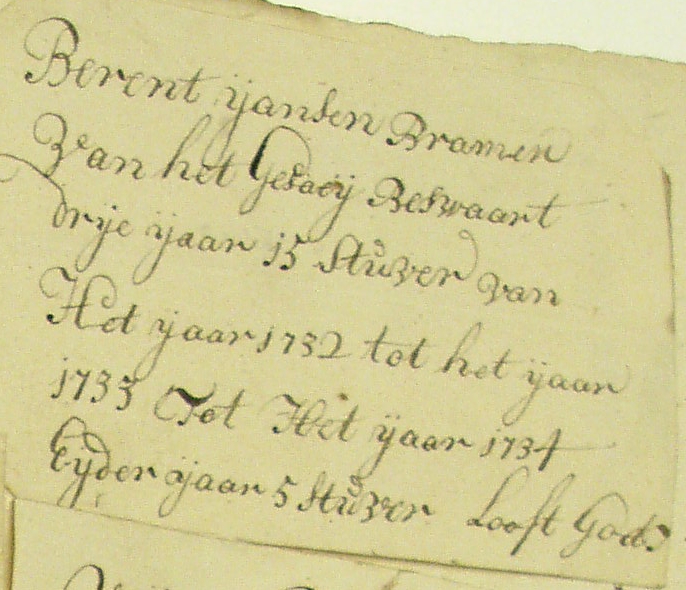 Berent yansen Bramen
Van het Gesaey Beswaart
drije yaar 15 Stuver van
Het yaar 1732 tot het yaar
1733 Tot Het yaar 1734
Eyder yaar 5 Stuver Looft God